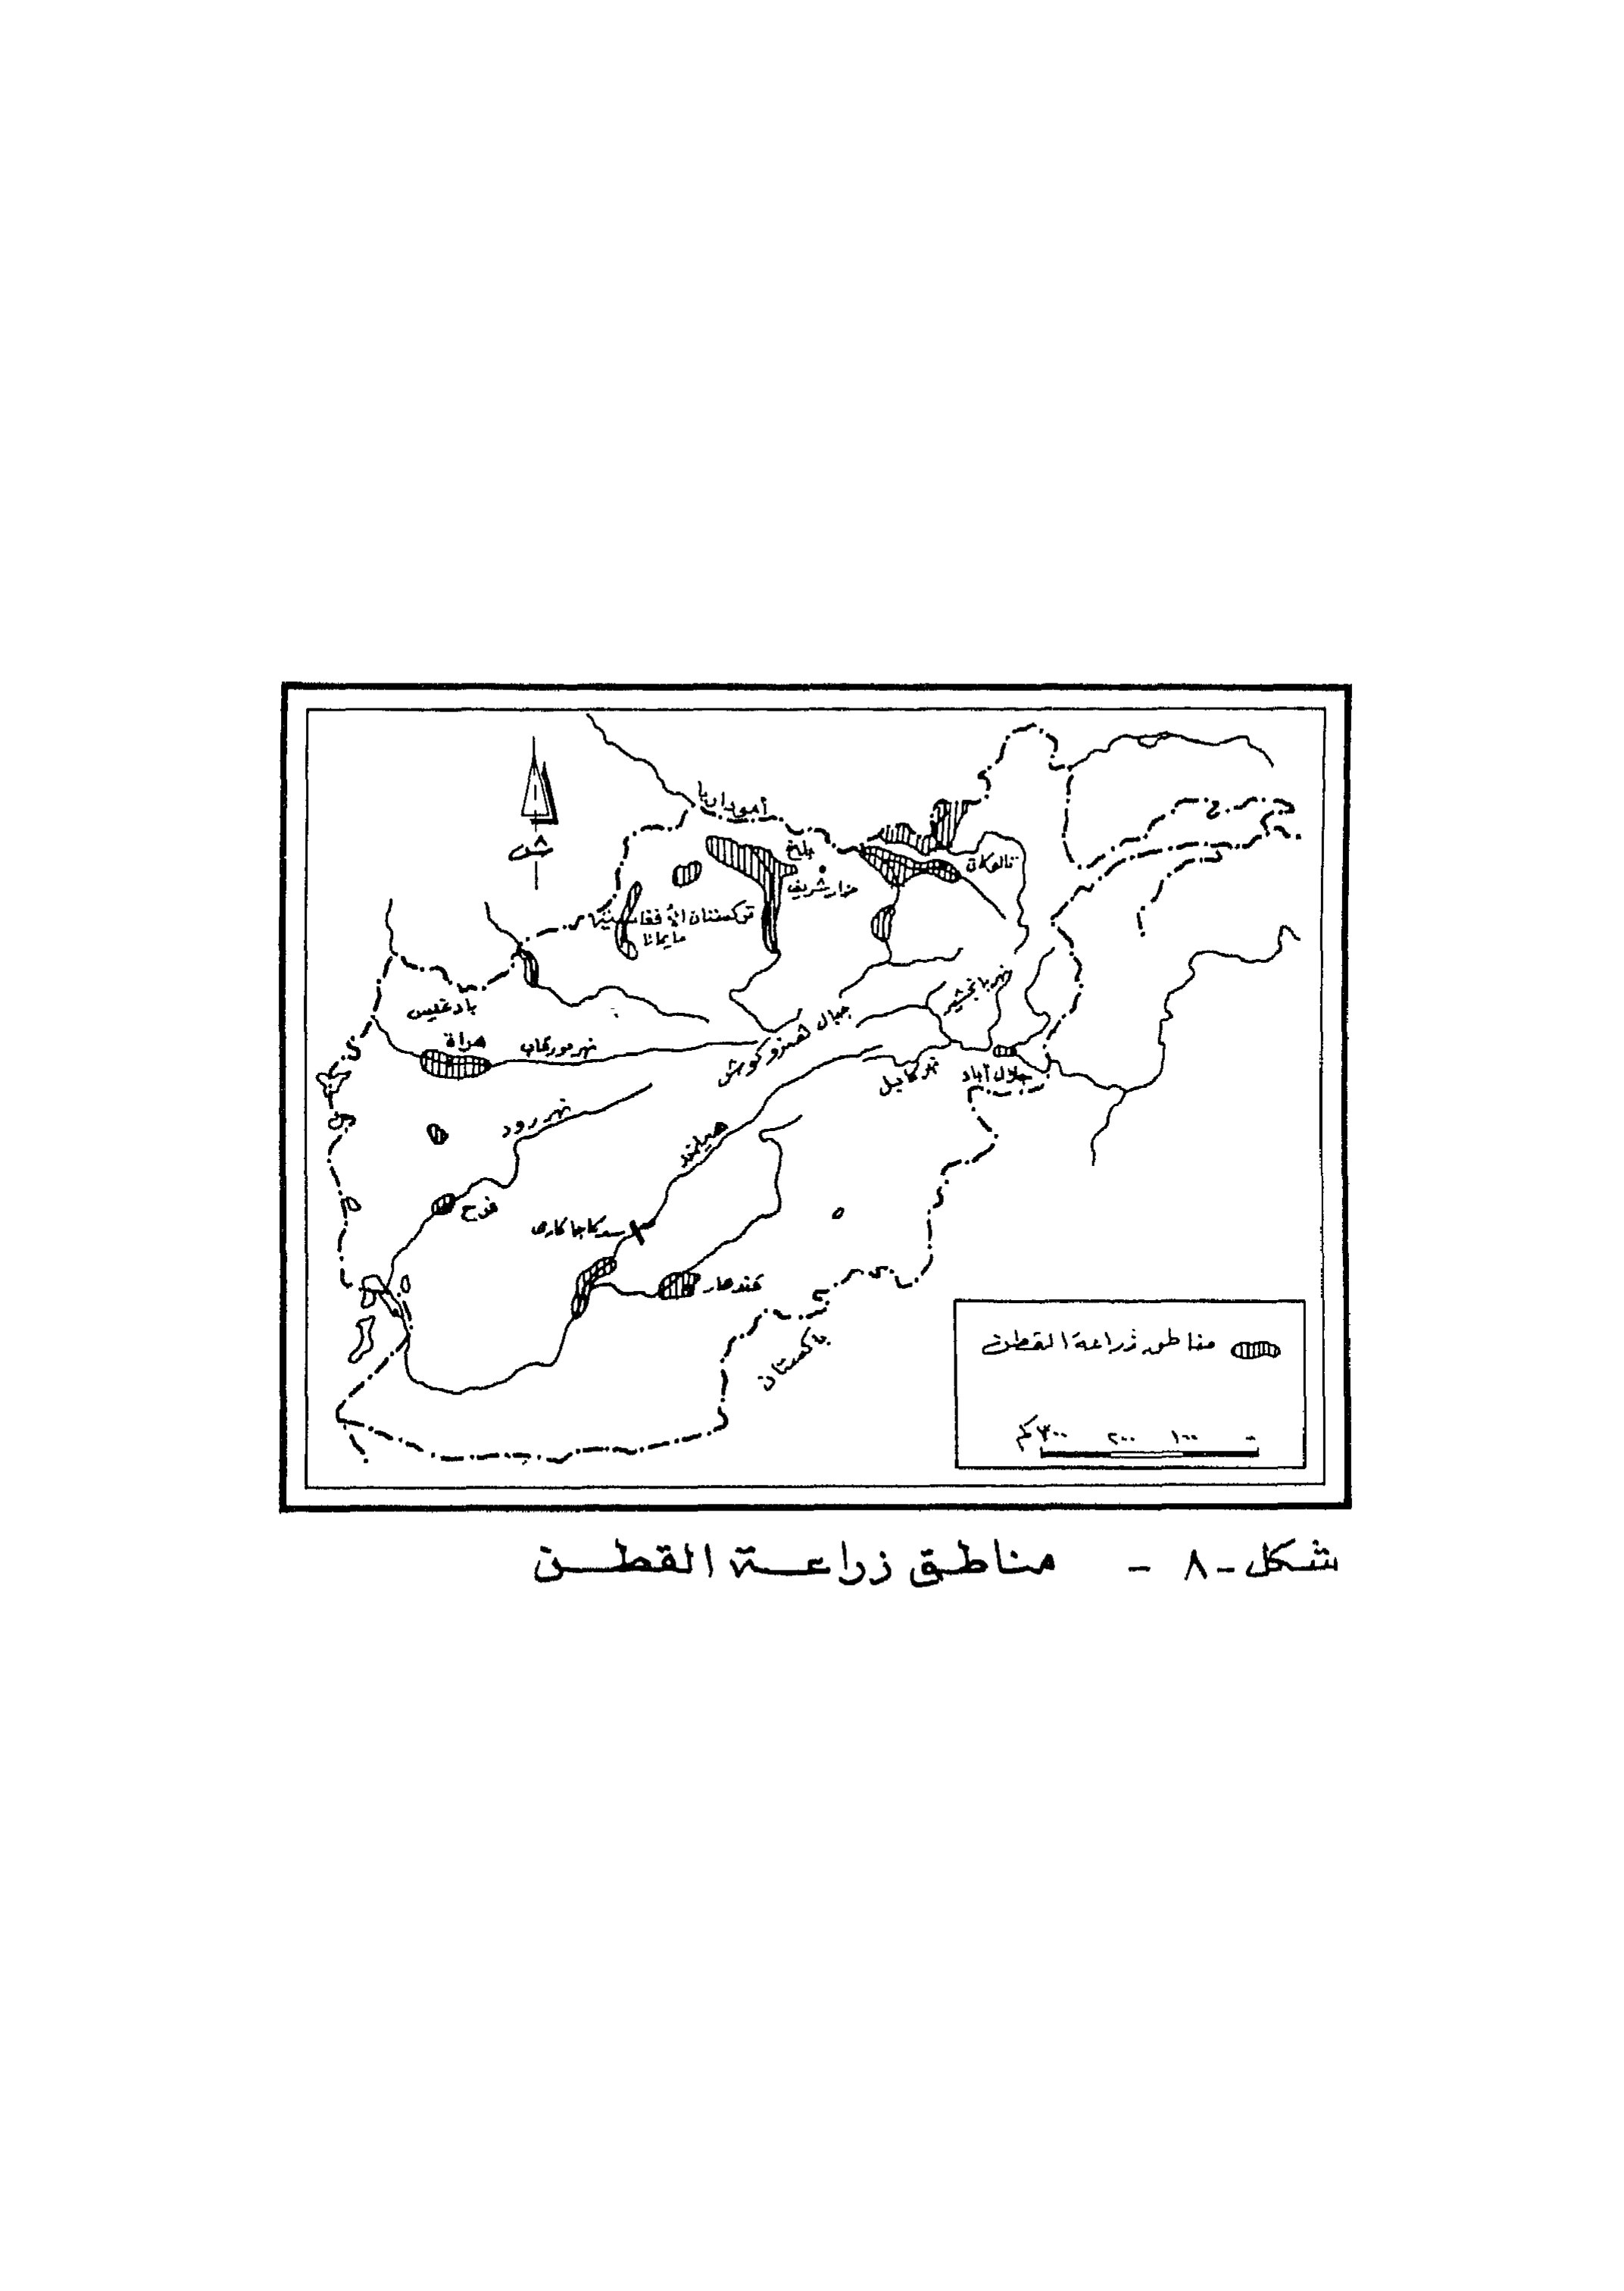 أموداريا
ش
بلخ
مزار شريف
تالوكان
تركستان الأفغانية
مايمانا
بادغليس
هراة
نهر مورغاب
جبال هندوكوش
نهر بانجشير
نهر كابيل
جلال آباد
نهر رود
هيلمند
فرح
سد كاجاكاري
كندهار
باكستان
مناطق زراعة القطن
٠ ١٠٠ ٢٠٠ ٣٠٠ كم
شكل - ٨ - مناطق زراعة القطن